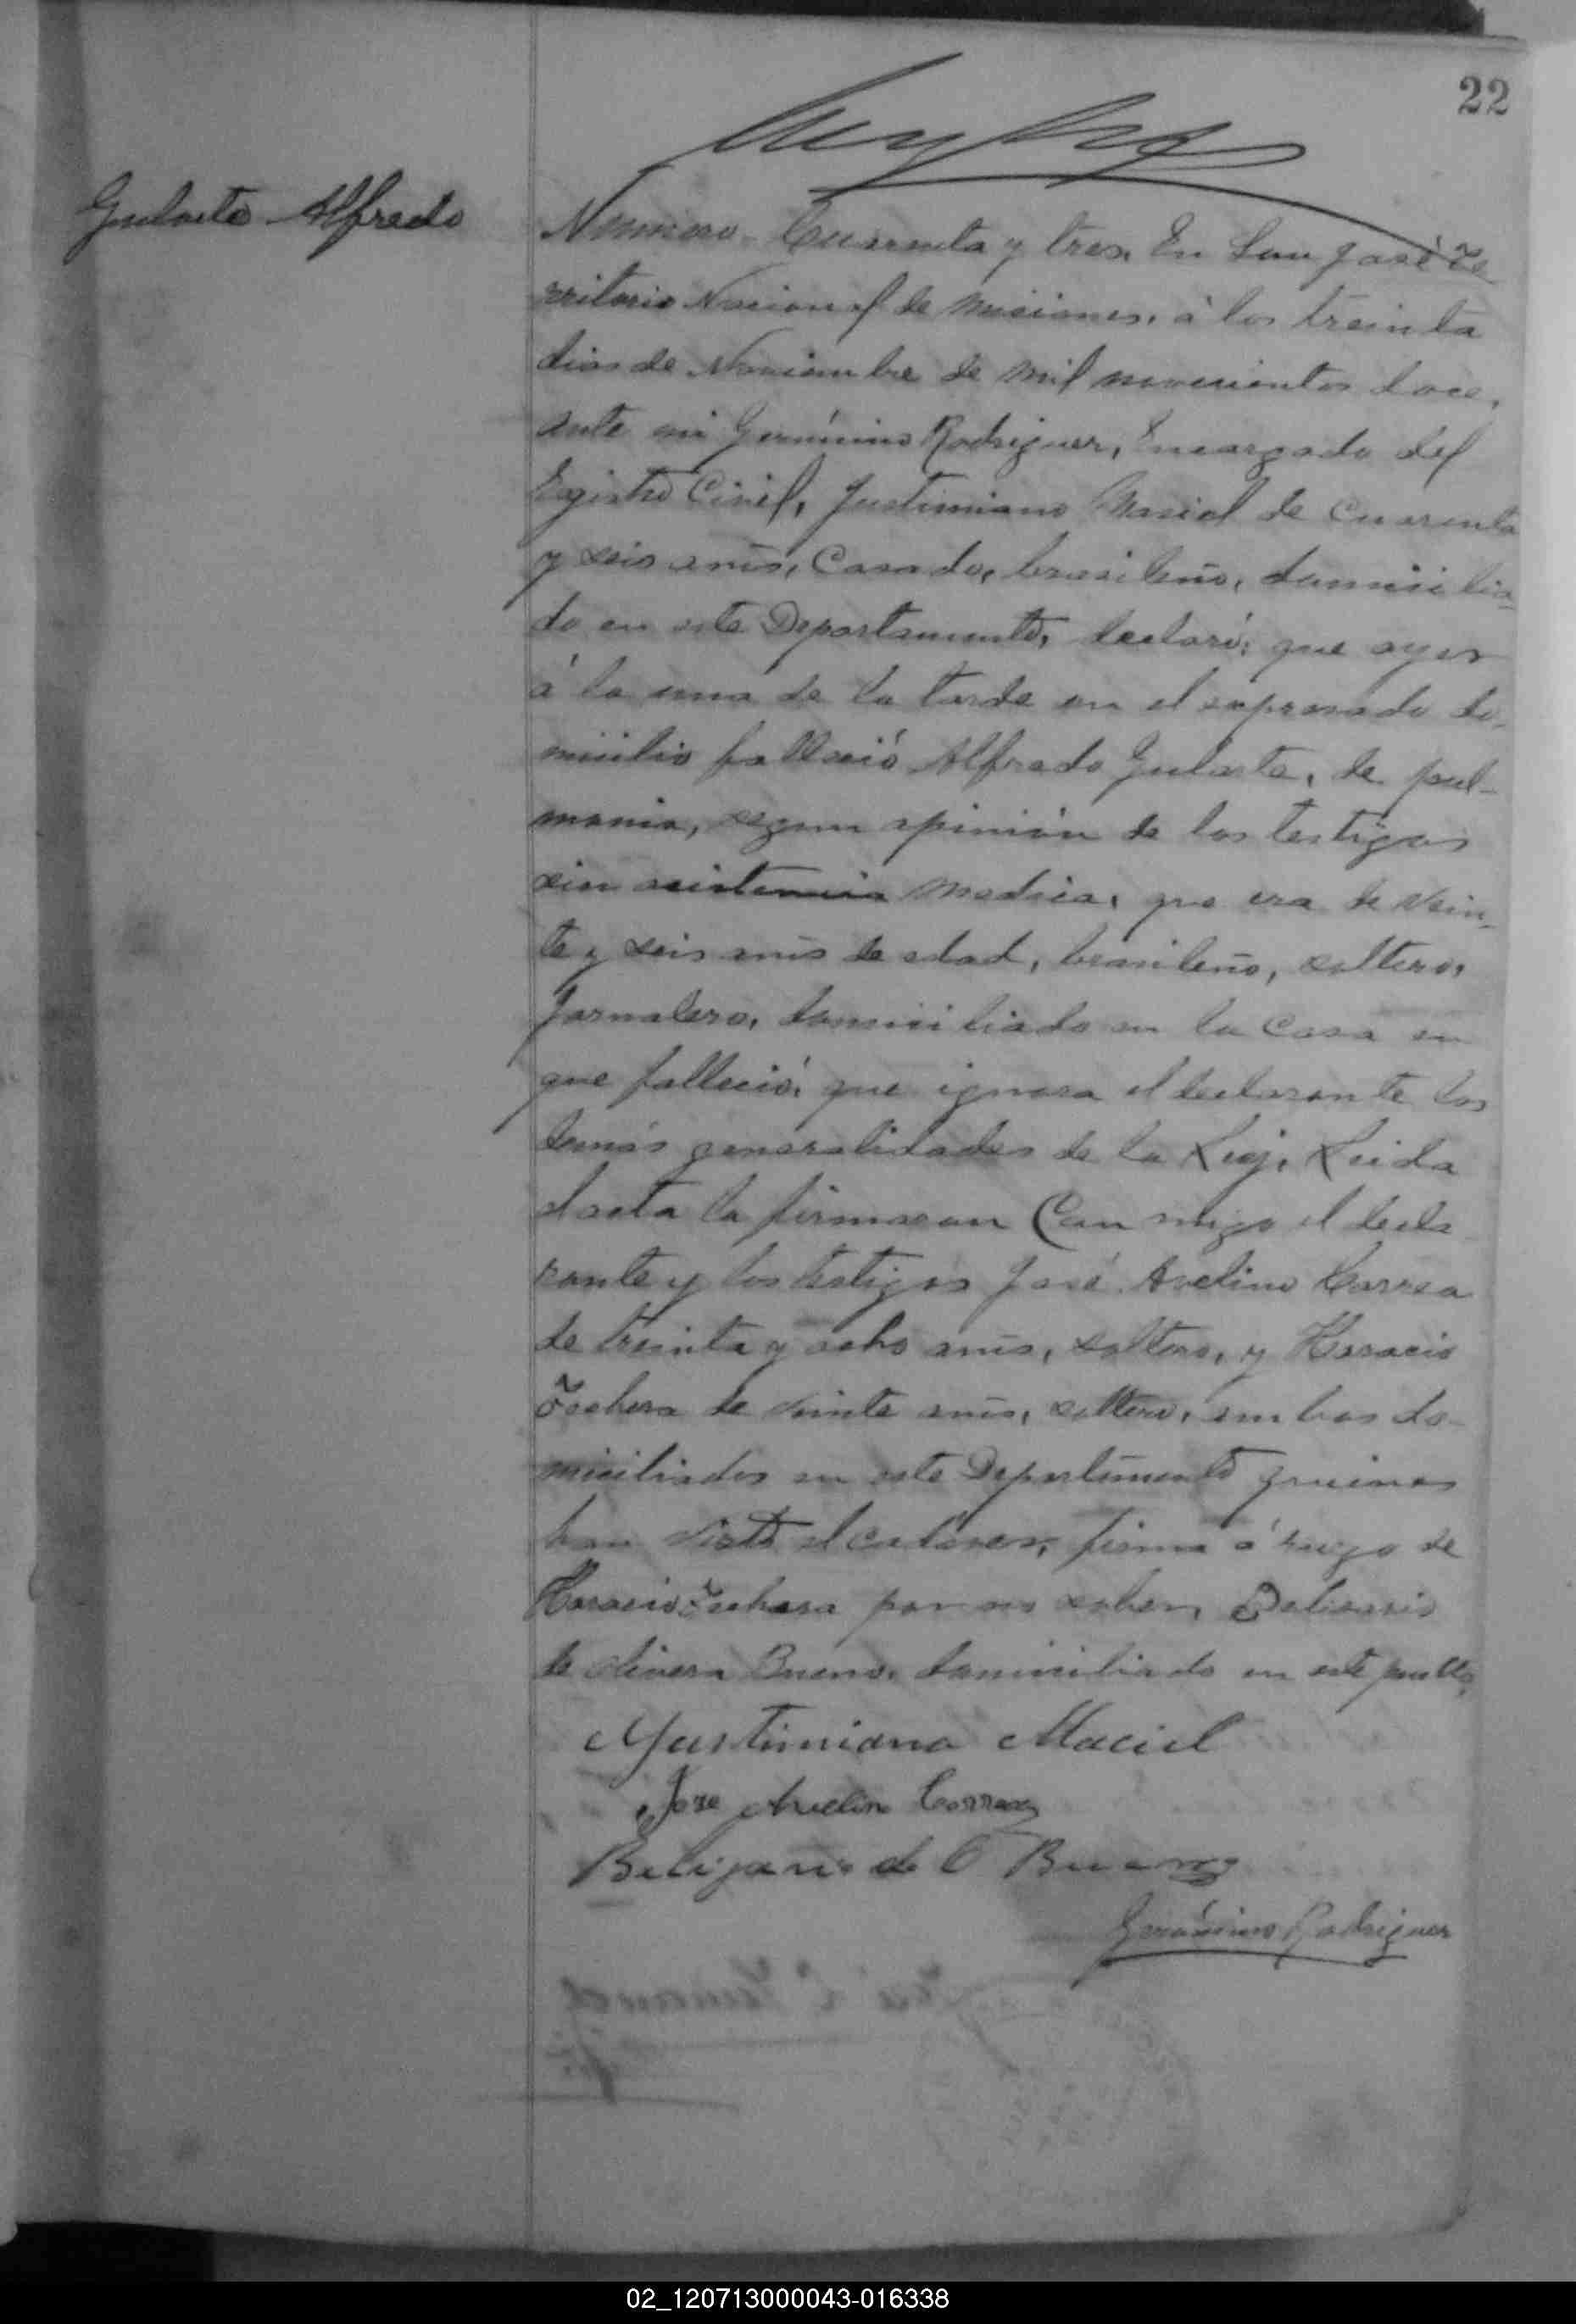 22
Gularte Alfredo
Numero Cuarenta y tres. En San José Te
rritorio Nacional de Misiones, á los treinta
dias de Noviembre de mil novecientos doce,
ante mi Gerónimo Rodriguez, Encargado del
Registro Civil, Justimiano Maciel de cuarenta
y seis anõs, Casado, brasileño, domicilia-
do en este Departamento, declaró: que ayer
á la una de la tarde en el expresado do-
micilio falleció Alfredo Gularte, de pul-
monia, segun opinión de los testigos
sin asistencia medica, que era de vein-
te y seis anõs de edad, brasileño, soltero,
Jornalero, domiciliado en la casa en
que falleció, que ignora el declarante las
demás generalidades de la Ley. Leida
el acta la firmaron Con migo el decla
rante y los testigos José Avelino Correa
de treinta y ocho anõs, soltero, y Horacio
de veinte anõs, soltero, ambos do-
miciliados en este Departamento quienes
han visto el cadaver, firma á ruego de
Horacio por no saber, Belisario
de Olivera Bueno, domiciliado en este pueblo.
Justimiano Maciel
Jose Avelin Correa
Belizario de O Bueno
Gerónimo Rodriguez
02_120713000043-016338